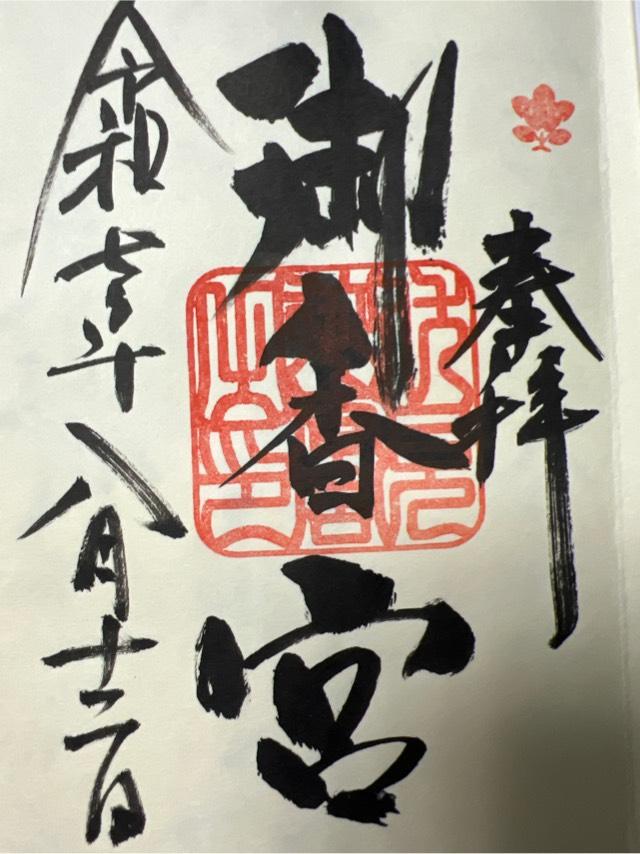 奉拝
御香宮
令和七年八月十二日